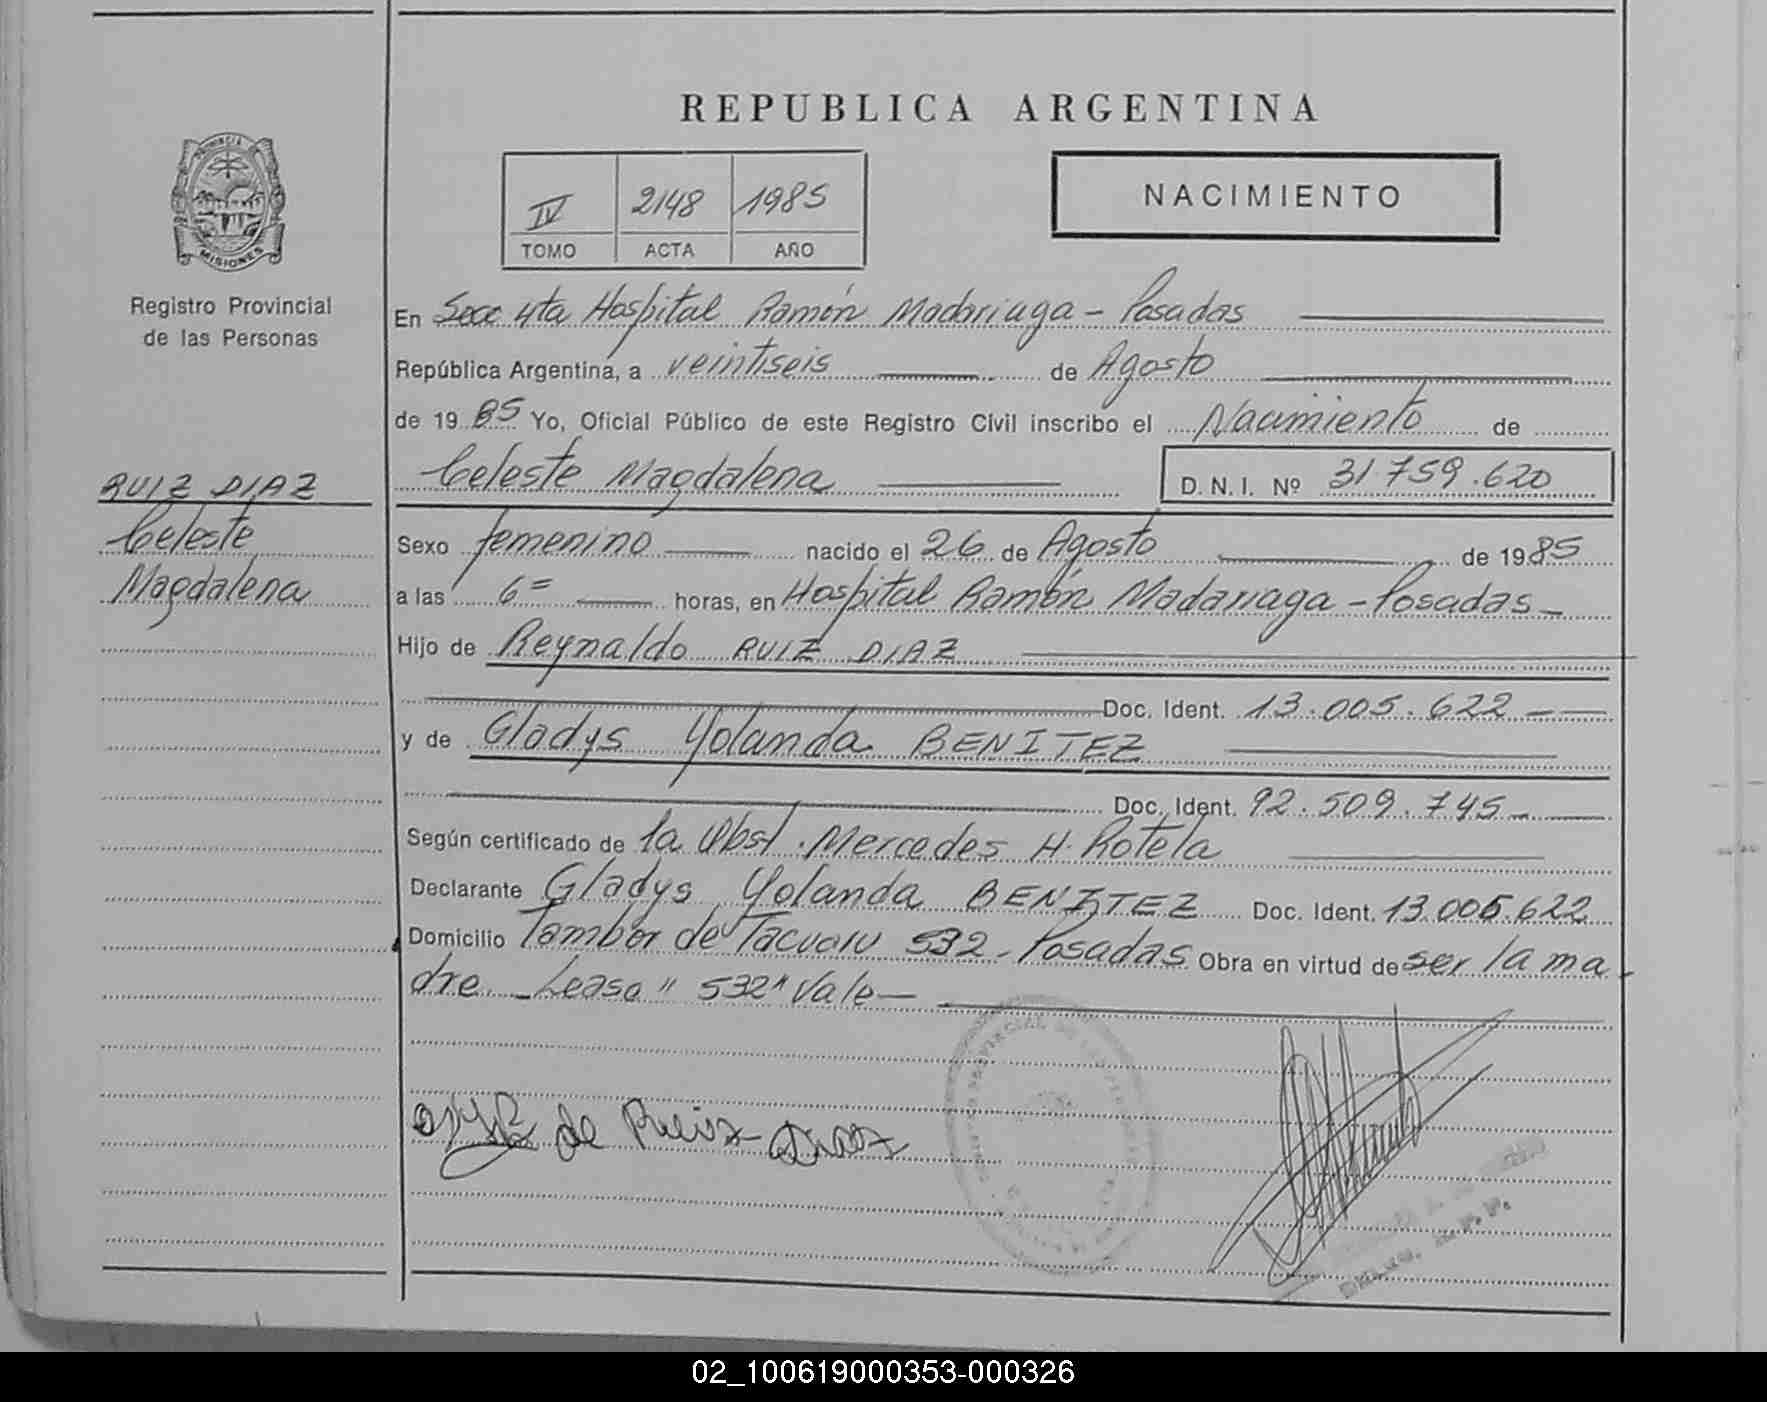 REPUBLICA ARGENTINA
PROVINCIA DE
MISIONES
Registro Provincial
de las Personas
IV 2148 1985
TOMO ACTA AÑO
NACIMIENTO
En Secc 4ta Hospital Ramón Madariaga - Posadas
República Argentina, a veintiseis de Agosto
de 19 85 Yo, Oficial Público de este Registro Civil inscribo el Nacimiento de
Celeste Magdalena D.N.I. Nº 31.759.620
RUIZ DIAZ
Celeste
Magdalena
Sexo femenino nacido el 26 de Agosto de 1985
a las 6= horas, en Hospital Ramón Madariaga - Posadas -
Hijo de Reynaldo RUIZ DIAZ
Doc. Ident. 13.005.622 -
y de Gladys Yolanda BENITEZ
Doc. Ident. 92.509.745 -
Según certificado de la Obst. Mercedes H. Rotela
Declarante Gladys Yolanda BENITEZ Doc. Ident. 13.005.622
Domicilio Tambor de Tacuari 532 - Posadas Obra en virtud de ser la ma-
dre. - Lease "532" Vale -
de Ruiz Diaz
02_100619000353-000326